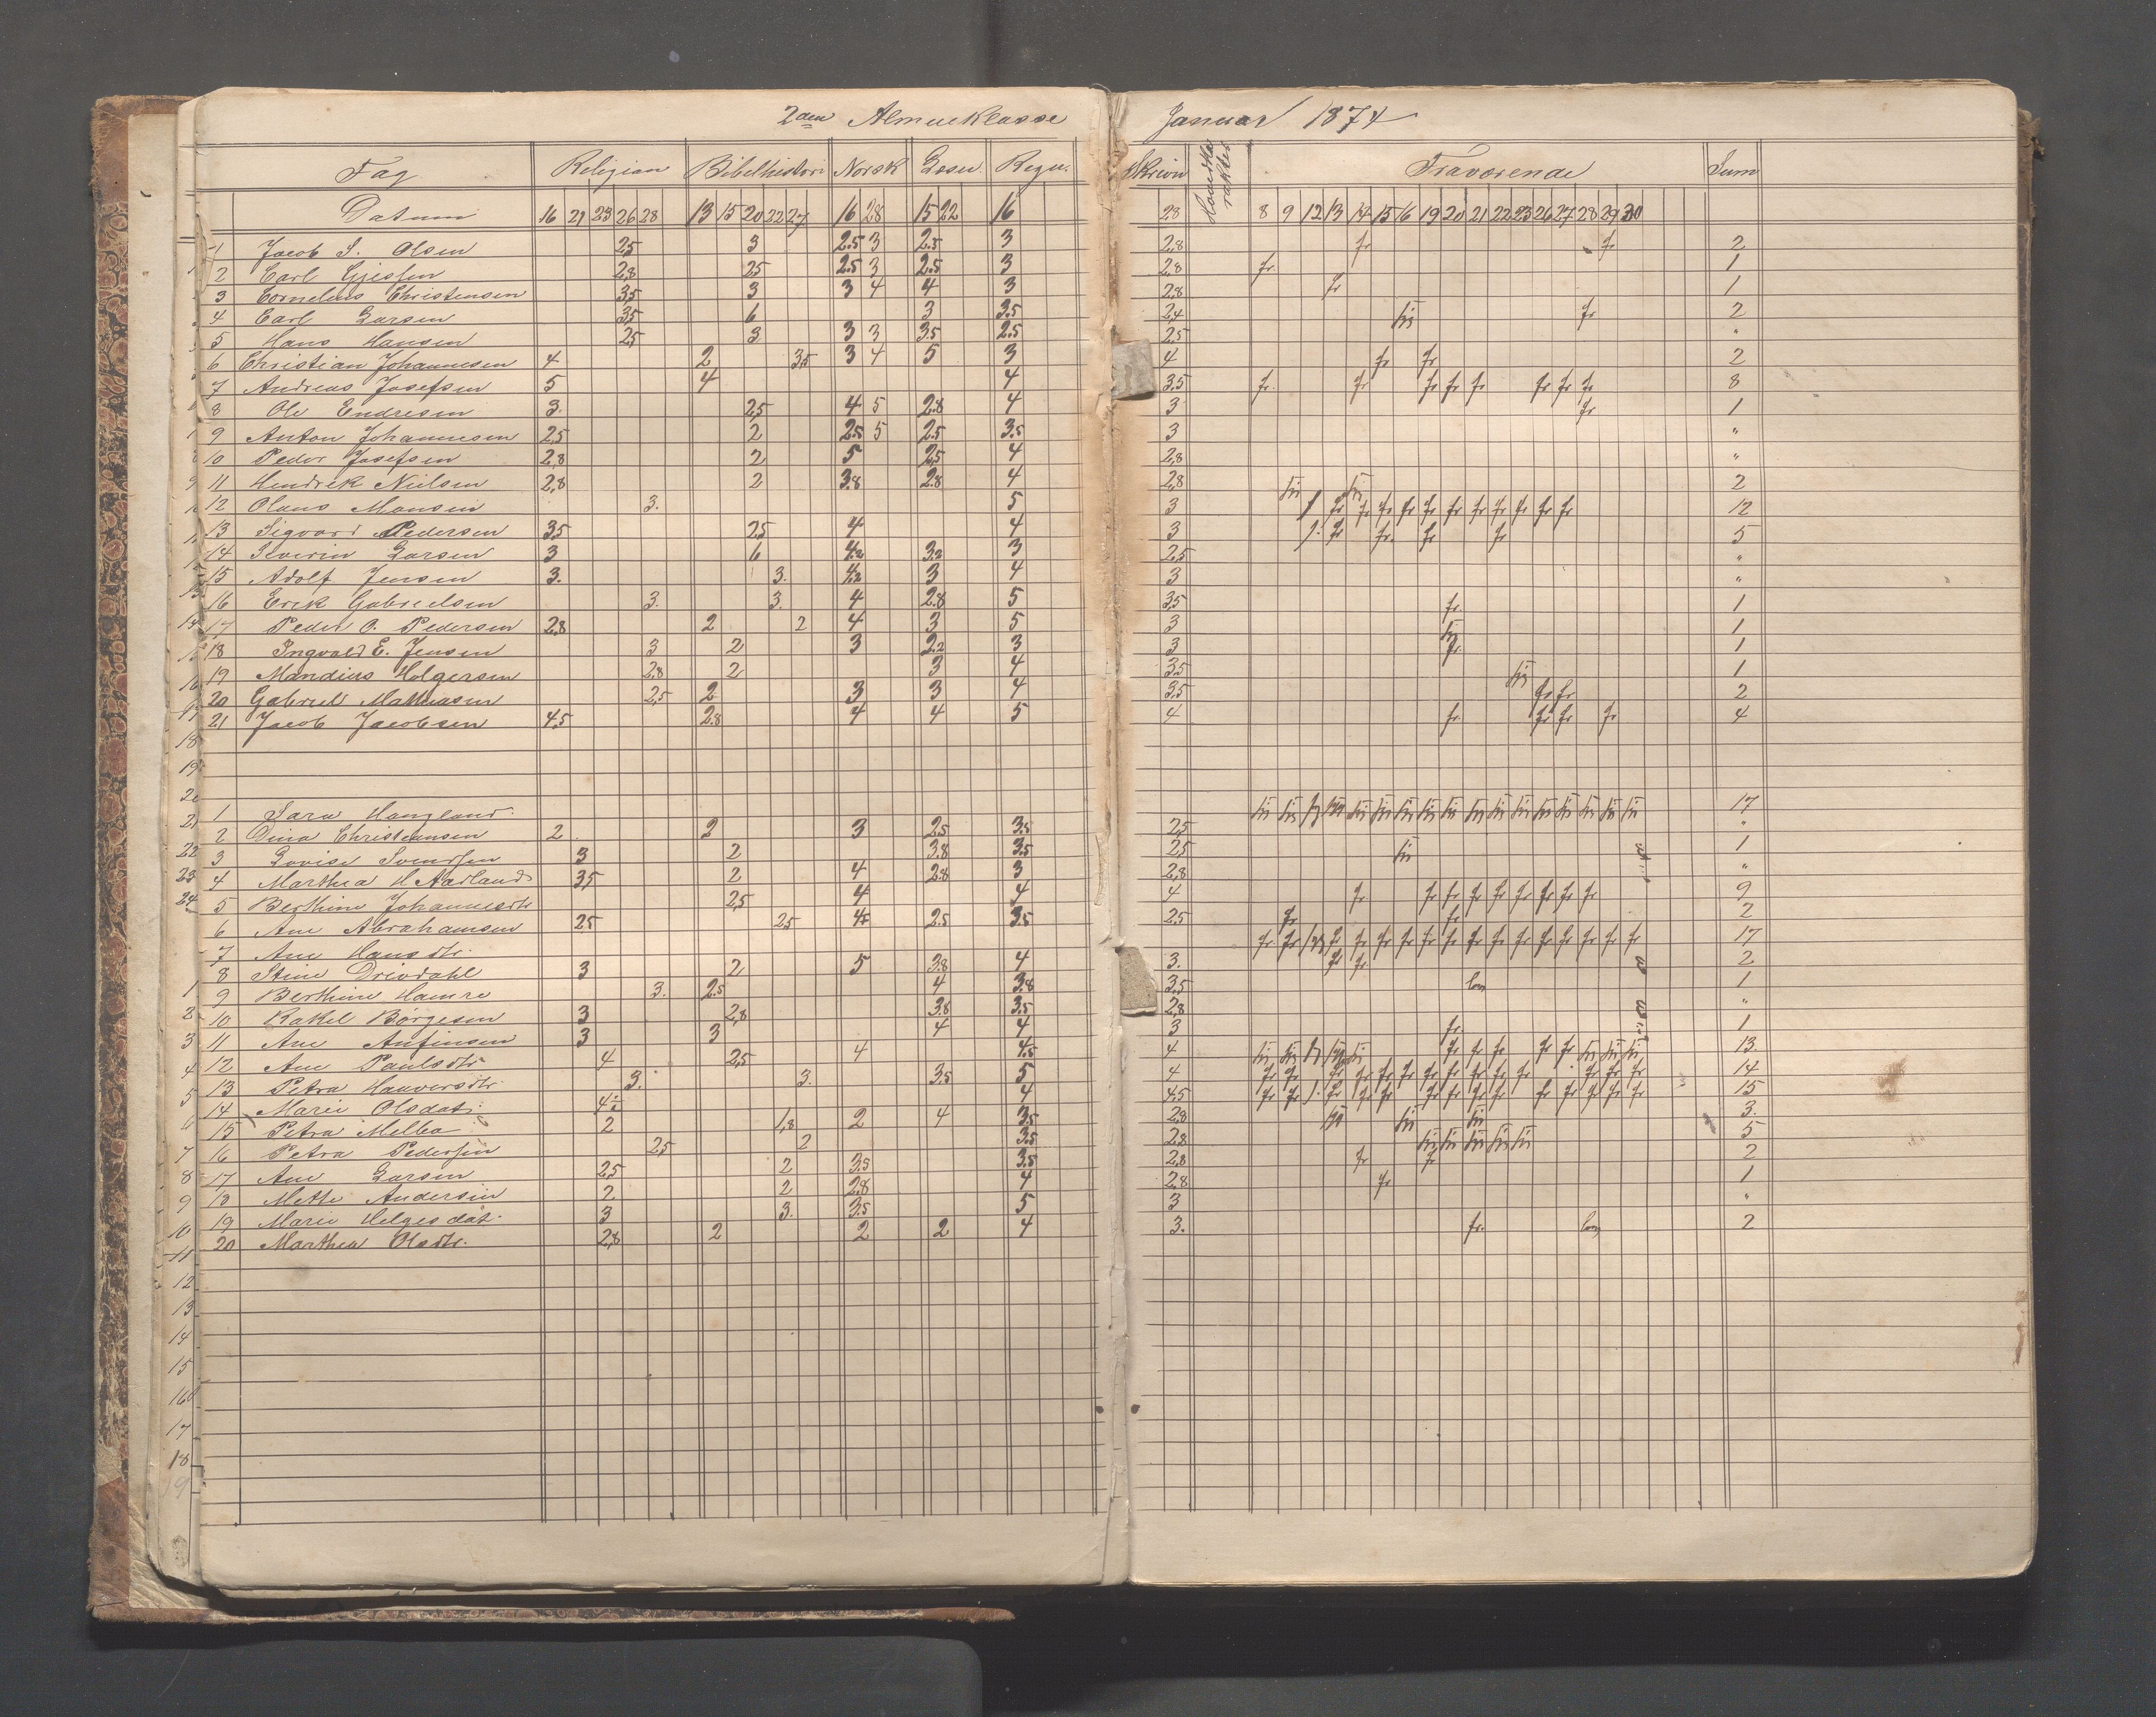 2den Almueklasse Januar 1874
Fag Religion Bibelhistori Norsk Læsn. Regn. Skrivn Haandka rakter Fraværende Sum
Datum 16 21 23 26 28 13 15 20 22 27 16 28 15 22 16 28 8 9 12 13 14 15 16 19 20 21 22 23 26 27 28 29 30
1 Jacob S. Olsen 2,5 3 2.5 3 2.5 3 2,8 fr fr 2
2 Carl Gjessen 2,8 2,5 2.5 3 2.5 3 2,8 fr. 1
3 Cornelius Christensen 3,5 3 3 4 4 3 2,8 fr 1
4 Carl Larsen 3,5 6 3 3.5 2,4 fr 2
5 Hans Hansen 2,5 3 3 3 3.5 2.5 2,5 "
6 Christian Johannesen 4 2 3,5 3 4 5 3 4 fr fr 2
7 Andreas Josefsen 5 4 4 3,5 fr. fr fr fr fr fr fr fr 8
8 Ole Endresen 3. 2,5 4 5 2.8 4 3 fr 1
9 Anton Johannesen 2,5 2 2.5 5 2.5 3.5 3 "
10 Peder Josefsen 2,8 2 5 2,5 4 2,8 "
11 Hendrik Nielsen 2,8 2 3.8 2.8 4 2,8 2
12 Olaus Monsen 3. 5 3 fr fr fr fr fr fr fr fr fr fr fr 12
13 Sigvard Pedersen 3,5 2,5 4 4 3 fr fr. fr fr 5
14 Severin Larsen 3 6 4.2 3.2 3 2,5 "
15 Adolf Jensen 3. 3. 4.2 3 4 3 "
16 Erik Gabrielsen 3. 3. 4 2.8 5 3,5 fr 1
17 Peder O. Pedersen 2,8 2 2 4 3 5 3 1
18 Ingvald E. Jensen 3 2 3 2.2 3 3 fr. 1
19 Mandius Holgersen 2,8 2 3 4 3,5 1
20 Gabriel Mathiasen 2,5 2 3 3 4 3,5 fr fr 2
21 Jacob Jacobsen 4,5 2.8 4 4 5 4 fr fr fr fr 4
1 Sara Haugland 17
2 Dina Christensen 2 2 3 2.5 3.5 2,5 "
3 Lovise Svendsen 3 2 3.8 3.5 2,5 1
4 Marthea H Aarland 3,5 2 4 2.8 3 2,8 "
5 Berthine Johannesdtr 2,5 4 4 4 fr fr fr fr fr fr fr fr fr 9
6 Ane Abrahamsen 2,5 2,5 4 2.5 3.5 2,5 fr fr 2
7 Ane Hansdtr. fr fr fr fr fr fr fr fr fr fr fr fr fr fr fr 17
8 Stine Drivdahl 3 2 5 3.8 4 3. fr fr 2
9 Berthine Hamre 3. 2.5 4 3.8 3,5 1
10 Rakel Børgesen 3 2,8 3.8 3.5 2,8 "
11 Ane Anfinsen 3 3 4 4 3 fr 1
12 Ane Paulsdtr 4 2,5 4 4.5 4 fr fr fr fr fr 13
13 Petra Hanversdtr. 3. 3. 3.5 5 4 fr fr fr fr fr fr fr fr fr fr fr fr fr fr 14
14 Marie Olsdat. 4 4 4,5 fr fr fr fr fr fr fr fr fr fr fr fr fr fr 15
15 Petra Melbo 2 1,8 2 4 3.5 2,8 3.
16 Petra Pedersen 2,5 2 3.5 2,8 5
17 Ane Larsen 2,5 2 3.5 3.5 2,8 fr fr 2
18 Mette Andersen 2 2 2.8 4 2,8 fr 1
19 Marie Helgesdat. 3 3. 3.5 5 3 "
20 Marthea Olsdtr. 2,8 2 2 2 4 3. fr. 2